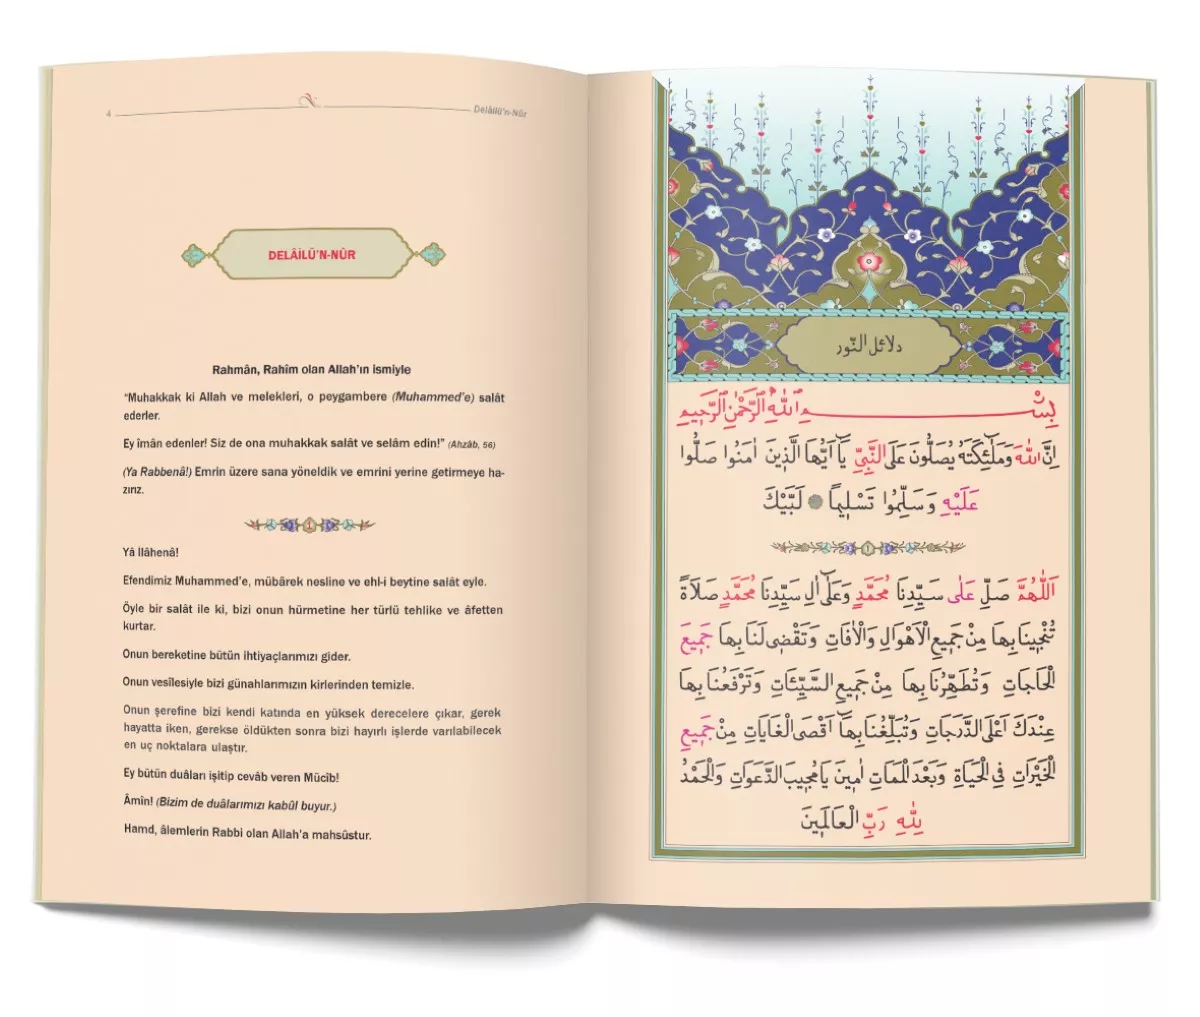 4
Delâilü'n-Nûr
DELÂİLÜ'N-NÛR
Rahmân, Rahîm olan Allah'ın ismiyle
“Muhakkak ki Allah ve melekleri, o peygambere (Muhammed'e) salât
ederler.
Ey îmân edenler! Siz de ona muhakkak salât ve selâm edin!” (Ahzâb, 56)
(Ya Rabbenâ!) Emrin üzere sana yöneldik ve emrini yerine getirmeye ha-
zırız.
Yâ ilâhenâ!
Efendimiz Muhammed'e, mübârek nesline ve ehl-i beytine salât eyle.
Öyle bir salât ile ki, bizi onun hürmetine her türlü tehlike ve âfetten
kurtar.
Onun bereketine bütün ihtiyaçlarımızı gider.
Onun vesîlesiyle bizi günahlarımızın kirlerinden temizle.
Onun şerefine bizi kendi katında en yüksek derecelere çıkar, gerek
hayatta iken, gerekse öldükten sonra bizi hayırlı işlerde varılabilecek
en uç noktalara ulaştır.
Ey bütün duâları işitip cevâb veren Mücîb!
Âmîn! (Bizim de duâlarımızı kabûl buyur.)
Hamd, âlemlerin Rabbi olan Allah'a mahsûstur.
دلائل النّور
بِسْــــــمِ اللّٰهِ الرَّحْمٰنِ الرَّحِيمِ
اِنَّ اللّٰهَ وَمَلٰٓئِكَتَهُ يُصَلُّونَ عَلَى النَّبِيِّ يَٓا اَيُّهَا الَّذِينَ اٰمَنُوا صَلُّوا
عَلَيْهِ وَسَلِّمُوا تَسْلِيمًا ۞ لَبَّيْكَ
اَللّٰهُمَّ صَلِّ عَلٰى سَيِّدِنَا مُحَمَّدٍ وَعَلٰٓى اٰلِ سَيِّدِنَا مُحَمَّدٍ صَلَاةً
تُنْجِينَا بِهَا مِنْ جَمِيعِ الْاَهْوَالِ وَالْاٰفَاتِ وَتَقْضِى لَنَا بِهَا جَمِيعَ
الْحَاجَاتِ وَتُطَهِّرُنَا بِهَا مِنْ جَمِيعِ السَّيِّئَاتِ وَتَرْفَعُنَا بِهَا
عِنْدَكَ اَعْلَى الدَّرَجَاتِ وَتُبَلِّغُنَا بِهَٓا اَقْصَى الْغَايَاتِ مِنْ جَمِيعِ
الْخَيْرَاتِ فِى الْحَيَاةِ وَبَعْدَ الْمَمَاتِ اٰمِينَ يَا مُجِيبَ الدَّعَوَاتِ وَالْحَمْدُ
لِلّٰهِ رَبِّ الْعَالَمِينَ